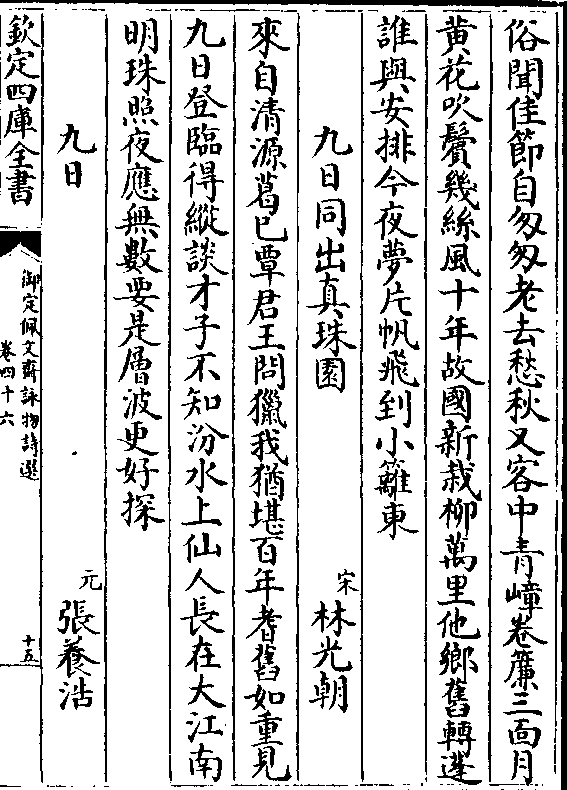 俗聞佳節自匆匆老去愁秋又客中青嶂卷簾三面月
黄花吹鬢幾絲風十年故國新栽柳萬里他鄉舊轉蓬
誰與安排今夜夢片帆飛到小籬東
九日同出真珠園 宋 林光朝
來自清源葛已覃君王問獵我猶堪百年耆舊如重見
九日登臨得縱談才子不知汾水上仙人長在大江南
明珠照夜應無數要是層波更好探
九日 元 張養浩
欽定四庫全書 御定佩文齋詠物詩選 卷四十六 十五